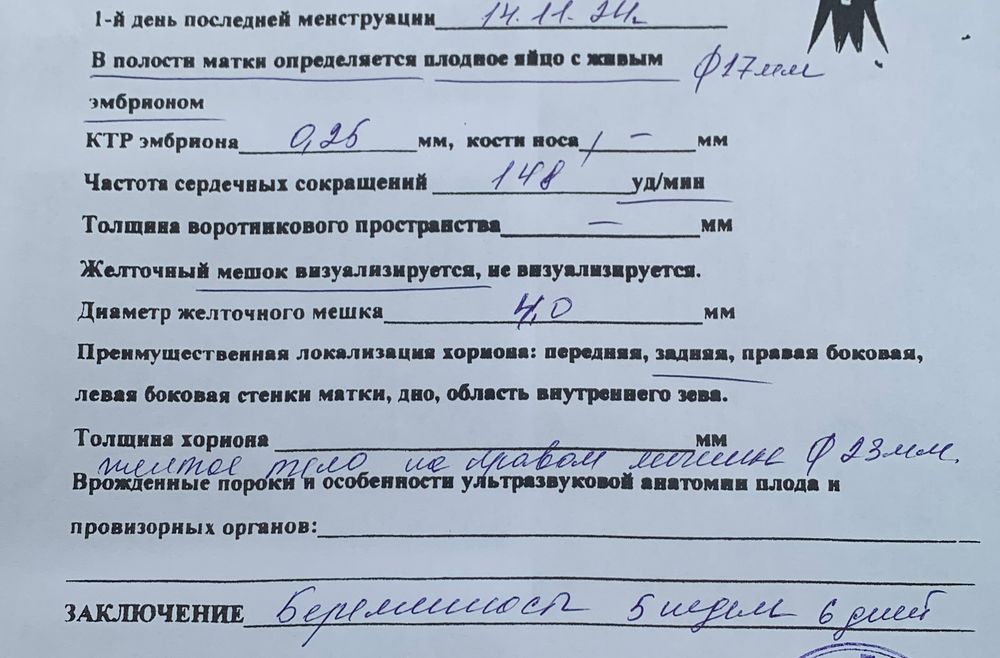 1-й день последней менструации 14.11.24г.
В полости матки определяется плодное яйцо с живым ф17мм
эмбрионом
КТР эмбриона 0,25 мм, кости носа / – мм
Частота сердечных сокращений 148 уд/мин
Толщина воротникового пространства – мм
Желточный мешок визуализируется, не визуализируется.
Диаметр желточного мешка 4,0 мм
Преимущественная локализация хориона: передняя, задняя, правая боковая,
левая боковая стенки матки, дно, область внутреннего зева.
Толщина хориона мм
желтое тело на правом яичнике ф 23мм.
Врожденные пороки и особенности ультразвуковой анатомии плода и
провизорных органов:
ЗАКЛЮЧЕНИЕ Беременность 5 недель 6 дней